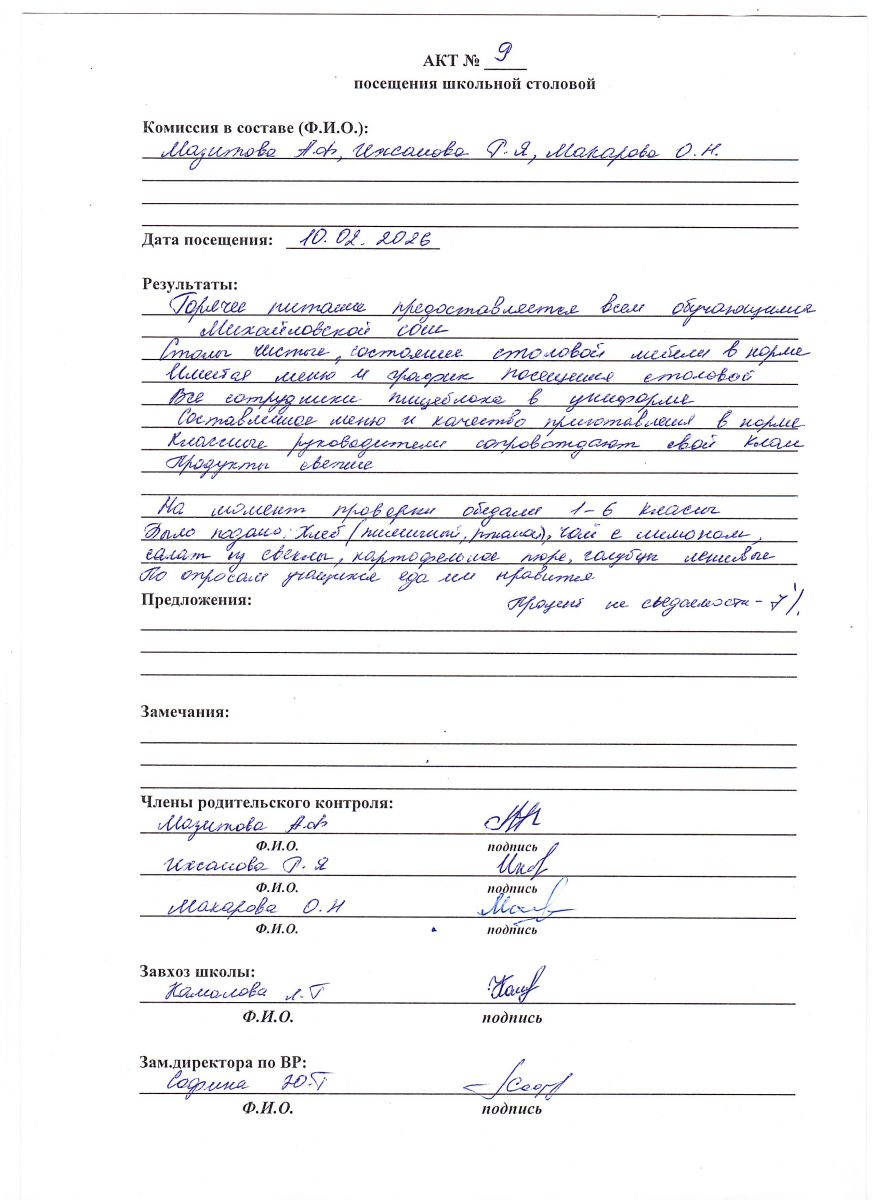 АКТ № 9
посещения школьной столовой
Комиссия в составе (Ф.И.О.):
Мазитова А.Ф, Ихсанова Р.Я, Макарова О.Н.
Дата посещения: 10.02.2026
Результаты:
Горячее питание предоставляется всем обучающимся
Михайловской сош
Столы чистые, состояние столовой мебели в норме
Имеется меню и график посещения столовой
Все сотрудники пищеблока в униформе
Составленное меню и качество приготовления в норме
Классные руководители сопровождают свой класс
Продукты свежие
На момент проверки обедали 1-6 классы
Было подано: Хлеб (пшеничный, ржаной), чай с лимоном,
салат из свеклы, картофельное пюре, голубцы ленивые
По опросам учащихся еда им нравится
Предложения: Процент не съедаемости - 7%.
Замечания:
Члены родительского контроля:
Мазитова А.Ф
Ф.И.О. подпись
Ихсанова Р.Я
Ф.И.О. подпись
Макарова О.Н
Ф.И.О. подпись
Завхоз школы:
Камалова Л.Г
Ф.И.О. подпись
Зам.директора по ВР:
Сафина Ю.Г
Ф.И.О. подпись